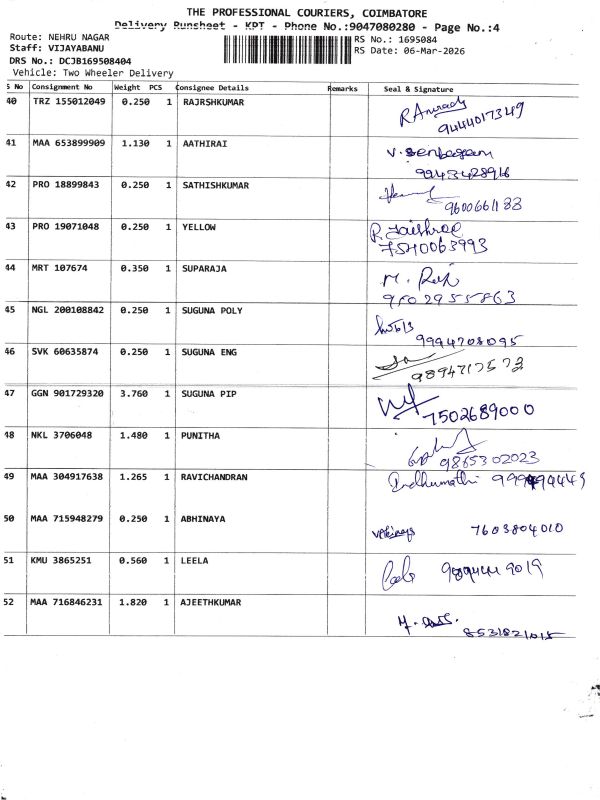 THE PROFESSIONAL COURIERS, COIMBATORE
Delivery Runsheet - KPT - Phone No.:9047080280 - Page No.:4
Route: NEHRU NAGAR
RS No.: 1695084
Staff: VIJAYABANU
RS Date: 06-Mar-2026
DRS No.: DCJB169508404
Vehicle: Two Wheeler Delivery
S No Consignment No Weight PCS Consignee Details Remarks Seal & Signature
40 TRZ 155012049 0.250 1 RAJRSHKUMAR
9444017349
41 MAA 653899909 1.130 1 AATHIRAI
V. Senbagam
9943428916
42 PRO 18899843 0.250 1 SATHISHKUMAR
9600661183
43 PRO 19071048 0.250 1 YELLOW R. Jaishree
7540063993
44 MRT 107674 0.350 1 SUPARAJA
9502955863
45 NGL 200108842 0.250 1 SUGUNA POLY
9994708095
46 SVK 60635874 0.250 1 SUGUNA ENG
9894717573
47 GGN 901729320 3.760 1 SUGUNA PIP
7502689000
48 NKL 3706048 1.480 1 PUNITHA
9865302023
49 MAA 304917638 1.265 1 RAVICHANDRAN Indhumathi
50 MAA 715948279 0.250 1 ABHINAYA
7603804010
51 KMU 3865251 0.560 1 LEELA
52 MAA 716846231 1.820 1 AJEETHKUMAR
8531821015